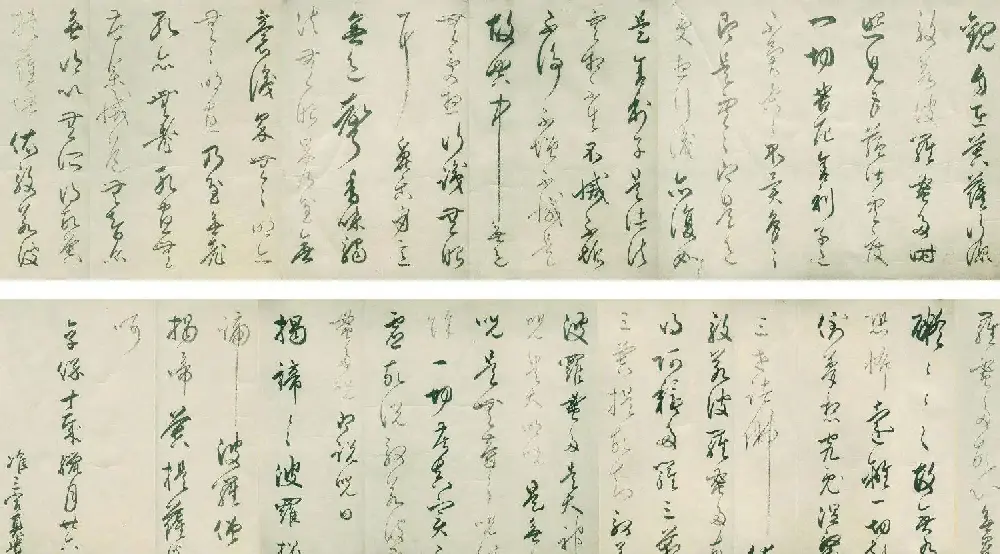 觀自在菩薩行深
般若波羅蜜多時
照見五蘊皆空度
一切苦厄舍利子色
不異空〻不異色〻
即是空〻即是色
受想行識亦復如
是舍利子是諸法
空相不生不滅不垢
不淨不增不減是
故空中無色
無受想行識無眼
耳鼻舌身意
無色聲香味觸
法無眼界乃至無
意識界無〻明亦
無〻明盡乃至無老
死亦無老死盡無
苦集滅道無智亦
無得以無所得故菩
提薩埵依般若波
羅蜜多故心無罣
礙〻〻故無有
恐怖遠離一切
倒夢想究竟涅槃
三世諸佛依
般若波羅蜜多故
得阿耨多羅三藐
三菩提故知般若
波羅蜜多是大神
咒是大明咒是無
咒是無等〻咒
除一切苦真實
虛故說般若波
蜜多咒即說咒曰
揭諦〻波羅揭
諦波羅僧
揭諦菩提薩
訶
享保十年臘月廿六
准三宮真